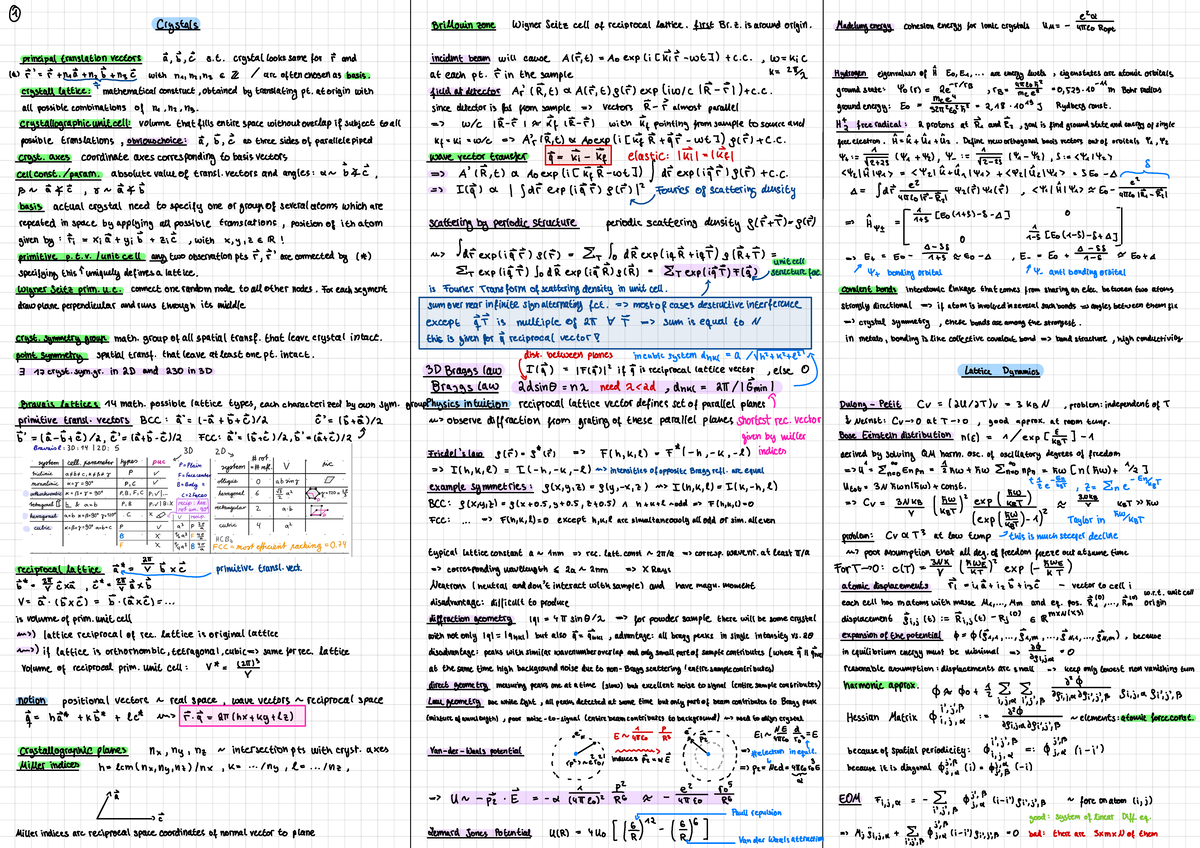 1
Crystals
principal translation vectors a⃗, b⃗, c⃗ s.t. crystal looks same for r⃗ and
(*) r⃗' = r⃗ + n₁a⃗ + n₂b⃗ + n₃c⃗ with n₁,n₂,n₃ ∈ ℤ / are often chosen as basis.
crystal lattice: mathematical construct, obtained by translating pt. at origin with
all possible combinations of n₁, n₂, n₃.
crystallographic unit cell: volume that fills entire space without overlap if subject to all
possible translations, obvious choice: a⃗, b⃗, c⃗ as three sides of parallelepiped
cryst. axes coordinate axes corresponding to basis vectors
cell const./param. absolute value of transl. vectors and angles: α ~ b⃗ ∡ c⃗,
β ~ a⃗ ∡ c⃗, γ ~ a⃗ ∡ b⃗
basis actual crystal need to specify one or group of several atoms which are
repeated in space by applying all possible translations, position of ith atom
given by: r⃗ᵢ = xᵢa⃗ + yᵢb⃗ + zᵢc⃗, with x,y,z ∈ ℝ!
primitive p.t.v./unit cell any two observation pts r⃗, r⃗' are connected by (*)
specifying this ↑ uniquely defines a lattice.
Wigner Seitz prim. u.c. connect one random node to all other nodes. For each segment
draw plane perpendicular and runs through its middle.
cryst. symmetry group math. group of all spatial transf. that leave crystal intact.
point symmetry spatial transf. that leave at least one pt. intact.
∃ 17 cryst. sym. gr. in 2D and 230 in 3D
Bravais lattices 14 math. possible lattice types, each characterized by own sym. group
primitive transl. vectors BCC: a⃗' = (-a⃗+b⃗+c⃗)/2 c⃗' = (b⃗+a⃗)/2
b⃗' = (a⃗-b⃗+c⃗)/2, c⃗' = (a⃗+b⃗-c⃗)/2 FCC: a⃗' = (b⃗+c⃗)/2, b⃗' = (a⃗+c⃗)/2
Bravais: 3D: 14 | 2D: 5 3D 2D
system cell. parameter types puc
P = Plain
F = face center
B = Body
C = 2 faces
triclinic P ✓
monoclinic P, C
orthorhombic α=β=γ=90° P, B, F, C
tetragonal P, B
hexagonal P
cubic α=β=γ=90° a=b=c P ✓ a³
B X
F X
system # rot + # refl. V uc
oblique 0 ab sin γ
hexagonal 6 √3/2 a²
rectangular 2 a·b
cubic 4 a²
FCC = most efficient packing = 0.74
reciprocal lattice a⃗* = 2π/V b⃗ × c⃗ primitive transl. vect.
b⃗* = 2π/V c⃗ × a⃗, c⃗* = 2π/V a⃗ × b⃗
V = a⃗·(b⃗×c⃗) = b⃗·(a⃗×c⃗) = ...
is volume of prim. unit cell
⇝) lattice reciprocal of rec. lattice is original lattice
⇝) if lattice is orthorhombic, tetragonal, cubic => same for rec. lattice
volume of reciprocal prim. unit cell: V* = (2π)³/V
notion positional vectors ~ real space, wave vectors ~ reciprocal space
q⃗ = ha⃗* + kb⃗* + lc⃗* ⇝ r⃗·q⃗ = 2π(hx+ky+lz)
Crystallographic planes nₓ, nᵧ, n_z ~ intersection pts with cryst. axes
Miller indices h = lcm(nₓ,nᵧ,n_z)/nₓ, k = .../nᵧ, l = .../n_z,
a⃗
c⃗
Miller indices are reciprocal space coordinates of normal vector to plane
Brillouin zone Wigner Seitz cell of reciprocal lattice. first Br. z. is around origin.
incident beam will cause A(r⃗,t) = A₀ exp(i[k⃗ᵢr⃗-ωt]) + c.c., ω = kᵢc
at each pt. r⃗ in the sample k = 2π/λ
field at detector Aᵣ'(R⃗,t) ∝ A(r⃗,t) ρ(r⃗) exp(iω/c |R⃗-r⃗|) + c.c.
since detector is far from sample => vectors R⃗-r⃗ almost parallel
=> ω/c |R⃗-r⃗| ≈ k⃗f (R⃗-r⃗) with k⃗f pointing from sample to source and
kf = kᵢ = ω/c => Aᵣ'(R⃗,t) ∝ A₀ exp(i[k⃗f R⃗ + q⃗r⃗ - ωt]) ρ(r⃗) + c.c.
wave vector transfer q⃗ = k⃗ᵢ - k⃗f elastic: |k⃗ᵢ| = |k⃗f|
=> A'(R⃗,t) ∝ A₀ exp(i[k⃗f R⃗-ωt]) ∫dr⃗ exp(iq⃗r⃗) ρ(r⃗) + c.c.
=> I(q⃗) ∝ |∫dr⃗ exp(iq⃗r⃗) ρ(r⃗)|² Fourier of scattering density
scattering by periodic structure periodic scattering density ρ(r⃗+T⃗) = ρ(r⃗)
⇝ ∫dr⃗ exp(iq⃗r⃗) ρ(r⃗) = Σ_T ∫₀ dR⃗ exp(iq⃗R⃗+iq⃗T⃗) ρ(R⃗+T⃗) =
Σ_T exp(iq⃗T⃗) ∫₀ dR⃗ exp(iq⃗R⃗) ρ(R⃗) = Σ_T exp(iq⃗T⃗) F(q⃗) unit cell structure fac.
is Fourier Transform of scattering density in unit cell.
sum over near infinite sign alternating fct. => most of cases destructive interference
except q⃗T⃗ is multiple of 2π ∀ T⃗ => sum is equal to N
this is given for q⃗ reciprocal vector!
dist. between planes in cubic system d_hkl = a/√(h²+k²+l²)
3D Braggs law I(q⃗) = |F(q⃗)|² if q⃗ is reciprocal lattice vector, else 0
Braggs law 2d sinθ = nλ need λ<2d, d_hkl = 2π/|G⃗min|
Physics intuition reciprocal lattice vector defines set of parallel planes
⇝ observe diffraction from grating of these parallel planes shortest rec. vector
given by miller
indices
Friedel's law ρ(r⃗) = ρ*(r⃗) => F(h,k,l) = F*(-h,-k,-l)
=> I(h,k,l) = I(-h,-k,-l) ⇝ intensities of opposite Bragg refl. are equal
example symmetries: ρ(x,y,z) = ρ(y,-x,z) ⇝ I(h,k,l) = I(k,-h,l)
BCC: ρ(x,y,z) = ρ(x+0.5, y+0.5, z+0.5) ∧ h+k+l odd => F(h,k,l) = 0
FCC: ... => F(h,k,l) = 0 except h,k,l are simultaneously all odd or sim. all even
typical lattice constant a ~ 1nm => rec. latt. const ~ 2π/a => corresp. wave nr. at least π/a
=> corresponding wavelength ≤ 2a ~ 2nm => X Rays
Neutrons (neutral and don't interact with sample) and have magn. moment
disadvantage: difficult to produce
diffraction geometry |q| = 4π sinθ/λ => for powder sample there will be some crystal
with not only |q| = |q_hkl| but also q⃗ = q⃗_hkl, advantage: all bragg peaks in single intensity vs. 2θ
disadvantage: peaks with similar wavenumber overlap and only small part of sample contributes (where q⃗ ∥ q⃗_hkl
at the same time high background noise due to non-Bragg scattering (entire sample contributes)
direct geometry measuring peaks one at a time (slow) but excellent noise to signal (entire sample contributes)
Laue geometry use white light, all peaks detected at same time but only part of beam contributes to Bragg peak
(mixture of wavelength), poor noise-to-signal (entire beam contributes to background) ⇝ need to align crystal
Van-der-Waals potential E ~ 1/4πε₀ P/R³ induces p⃗₂ = αE⃗
E₁ ~ NE/4πε₀ d/r₀³ = E
#electron in equil.
=> p₂ = Ned = 4πε₀r₀³E
α
=> U ~ -p⃗₂·E⃗ = -α 1/(4πε₀)² p²/R⁶ ≈ - e²/4πε₀ r₀⁵/R⁶
Pauli repulsion
Lennard Jones Potential U(R) = 4U₀ [(σ/R)¹² - (σ/R)⁶]
Van der Waals attraction
Madelung energy cohesion energy for ionic crystals U_M = - e²α/4πε₀R_opt
Hydrogen eigenvalues of Ĥ E₀, E₁, ... are energy levels, eigenstates are atomic orbitals
ground state: Ψ₀(r) = 2e^(-r/r_B)/..., r_B = 4πε₀ħ²/m_e e² = 0,529·10⁻¹¹ m Bohr radius
ground energy: E₀ = m_e e⁴/32π²ε₀²ħ² = 2,18·10⁻¹⁸ J Rydberg const.
H₂⁺ free radical: 2 protons at R⃗₁ and R⃗₂, goal is find ground state and energy of single
free electron. Ĥ = K̂ + Û₁ + Û₂. Define new orthogonal basis vectors out of orbitals Ψ₁, Ψ₂
Ψ₊ := 1/√(2+2S) (Ψ₁+Ψ₂), Ψ₋ := 1/√(2-2S) (Ψ₁-Ψ₂), S := <Ψ₁|Ψ₂>
<Ψ₂|Ĥ|Ψ₁> = <Ψ₂|K̂+Û₁|Ψ₁> + <Ψ₂|Û₂|Ψ₁> = SE₀ - Δ
Δ = ∫dr⃗ e²/4πε₀|r⃗-R⃗₁| Ψ₂(r⃗)Ψ₁(r⃗), <Ψ₁|Ĥ|Ψ₁> ≈ E₀ - e²/4πε₀|R⃗₁-R⃗₂|
δ
=> Ĥ_Ψ± = [ 1/(1+S) [E₀(1+S)-δ-Δ] 0
0 1/(1-S) [E₀(1-S)-δ+Δ] ]
=> E₊ = E₀ - (Δ-Sδ)/(1+S) ≈ E₀-Δ, E₋ = E₀ + (Δ-Sδ)/(1-S) ≈ E₀+Δ
Ψ₊ bonding orbital Ψ₋ anti bonding orbital
covalent bonds interatomic linkage that comes from sharing an elec. between two atoms
strongly directional => if atom is involved in several such bonds => angles between them fix
=> crystal symmetry, these bonds are among the strongest.
in metals, bonding is like collective covalent bond => band structure, high conductivity
Lattice Dynamics
Dulong-Petit Cv = (∂U/∂T)v = 3k_B N, problem: independent of T
& Nernst: Cv→0 at T→0, good approx. at room temp.
Bose Einstein distribution n(E) = 1/exp[E/k_BT]-1
derived by solving QM harm. osc. of oscillatory degrees of freedom
=> U¹ = Σₙ₌₀^∞ Eₙpₙ = 1/2 ħω + ħω Σₙ₌₀^∞ npₙ = ħω [n(ħω) + 1/2]
U_tot = 3Nħωn(ħω) + const.
=> Cv = 3Nk_B (ħω/k_BT)² exp(ħω/k_BT)/(exp(ħω/k_BT)-1)² ≈ 3Nk_B k_BT >> ħω
Taylor in ħω/k_BT
problem: Cv ∝ T³ at low temp → this is much steeper decline
⇝ poor assumption that all deg. of freedom freeze out at same time
For T→0: c(T) = 3Nk/V (ħω_E/kT)² exp(-ħω_E/kT)
atomic displacements r⃗ᵢ = i₁a⃗ + i₂b⃗ + i₃c⃗ - vector to cell i
each cell has m atoms with masse M₁,..., Mm and eq. pos. R⃗₁⁽⁰⁾,..., R⃗m⁽⁰⁾ w.r.t. unit cell origin
displacement ρ⃗ᵢ,ⱼ(t) := R⃗ᵢ,ⱼ(t) - Rⱼ⁽⁰⁾
expansion of the potential because
in equilibrium energy must be minimal ⇝ ∂ϕ/∂ρᵢ,ⱼ,α = 0
reasonable assumption: displacements are small ⇝ keep only lowest non vanishing turm
harmonic approx. ϕ ≈ ϕ₀ + 1/2 Σ Σ ∂²ϕ/∂ρᵢ,ⱼ,α ∂ρᵢ',ⱼ',β ρᵢ,ⱼ,α ρᵢ',ⱼ',β
Hessian Matrix ϕ := ∂²ϕ/∂ρᵢ,ⱼ,α ∂ρᵢ',ⱼ',β ~ elements: atomic force const.
because of spatial periodicity: =: ϕ (i-i')
because it is diagonal ϕ (i) = ϕ (-i)
EOM Fᵢ,ⱼ,α = - Σ ϕ (i-i') ρᵢ',ⱼ',β ~ force on atom (i,j)
good: system of linear Diff eq.
=> Mⱼ ρ̈ᵢ,ⱼ,α + Σ ϕ (i-i') ρᵢ',ⱼ',β = 0 bad: there are 3×m×N of them